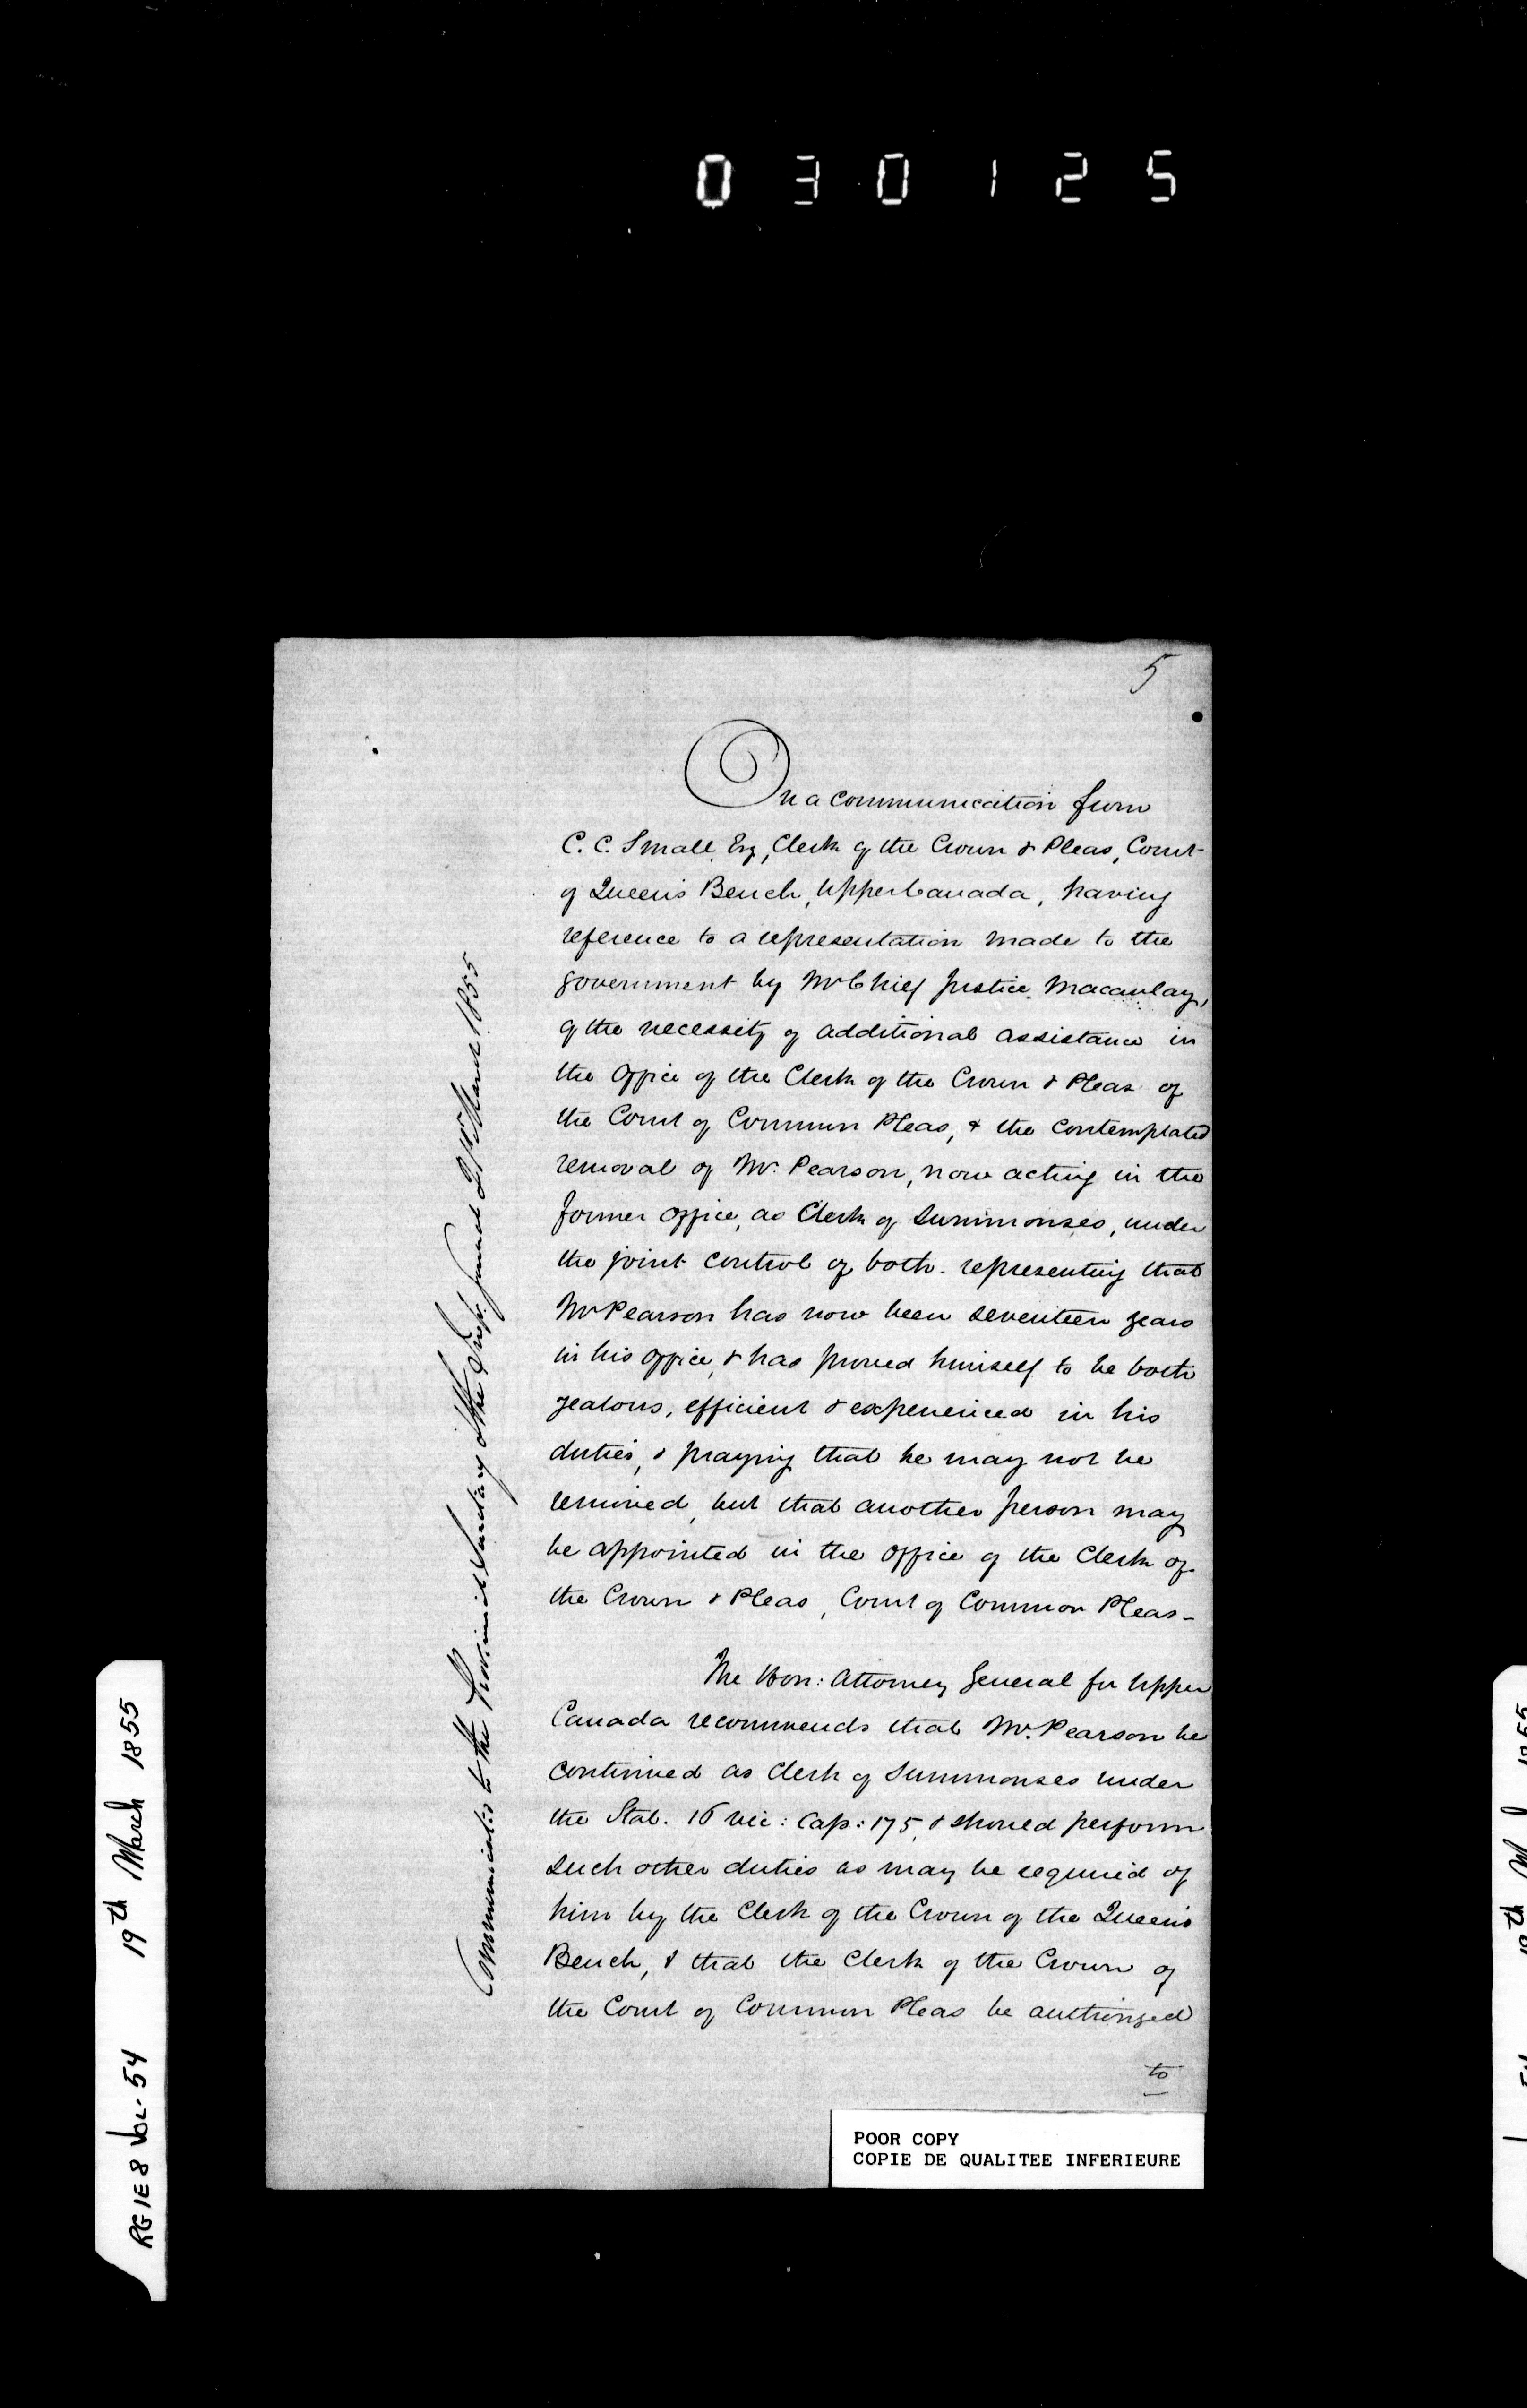 0 3 0 1 2 5
5
On a communication from
C. C. Small, Esq, Clerk of the Crown & Pleas, Court
of Queen's Bench, Upper Canada, having
reference to a representation made to the
Government by Mr Chief Justice Macaulay,
of the necessity of additional assistance in
the Office of the Clerk of the Crown & Pleas of
the Court of Common Pleas, & the contemplated
removal of Mr. Pearson, now acting in the
former Office, as Clerk of Summonses, under
the joint control of both. representing that
Mr Pearson has now been seventeen years
in his Office, & has proved himself to be both
zealous, efficient & experienced in his
duties, & praying that he may not be
removed, but that another person may
be appointed in the Office of the Clerk of
the Crown & Pleas, Court of Common Pleas -
The Hon: Attorney General for Upper
Canada recommends that Mr. Pearson be
continued as Clerk of Summonses under
the Stat. 16 Vic: Cap: 175, & should perform
such other duties as may be required of
him by the Clerk of the Crown of the Queen's
Bench, & that the Clerk of the Crown of
the Court of Common Pleas be authorized
to
Communicated to the Provincial Secretary March 1855
POOR COPY
COPIE DE QUALITEE INFERIEURE
RG 1E8 Vol. 54 19th March 1855